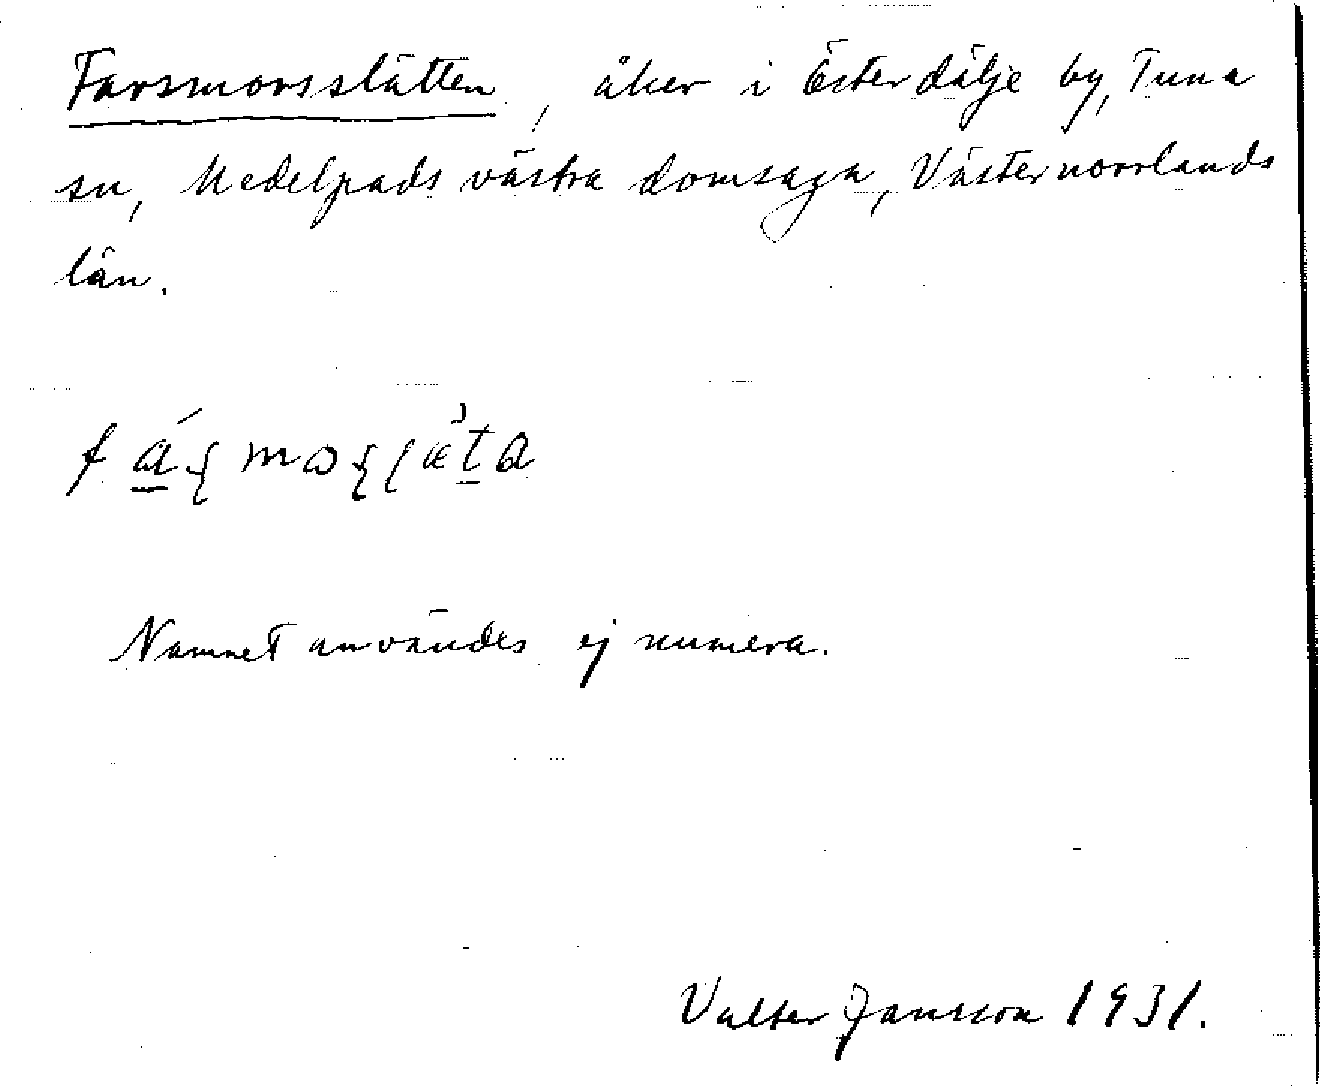 Farsmorsslätten, åker i Österdälje by, Tuna
sn, Medelpads västra domsaga, Västernorrlands
län.
Namnet användes ej numera.
Valter Jansson 1931.